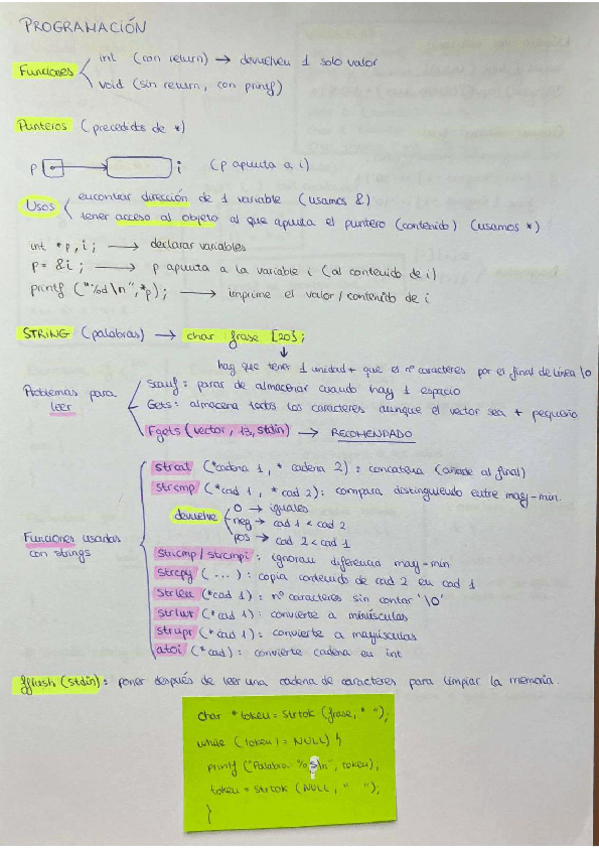 PROGRAMACIÓN
Funciones
int (con return) → devuelven 1 solo valor
void (sin return, con printf)
Punteros (precedidos de *)
p i (p apunta a i)
Usos
encontrar dirección de 1 variable (usamos &)
tener acceso al objeto al que apunta el puntero (contenido) (usamos *)
int *p, i; → declarar variables
p = &i; → p apunta a la variable i (al contenido de i)
printf ("%d\n", *p); → imprime el valor/contenido de i
STRING (palabras) → char frase [20];
hay que tener 1 unidad + que el nº caracteres por el final de línea \0
Problemas para leer
Scanf: parar de almacenar cuando hay 1 espacio
Gets: almacena todos los caracteres aunque el vector sea + pequeño
Fgets (vector, 13, stdin) → RECOMENDADO
Funciones usadas con strings
strcat (*cadena 1, * cadena 2): concatena (añade al final)
strcmp (*cad 1, * cad 2): compara distinguiendo entre may-min.
devuelve
0 → iguales
neg → cad 1 < cad 2
pos → cad 2 < cad 1
stricmp/strcmpi: ignoran diferencia may-min
strcpy (...): copia contenido de cad 2 en cad 1
strlen (*cad 1): nº caracteres sin contar '\0'
strlwr (*cad 1): convierte a minúsculas
strupr (*cad 1): convierte a mayúsculas
atoi (*cad): convierte cadena en int
fflush (stdin): poner después de leer una cadena de caracteres para limpiar la memoria.
char * token = strtok (frase, " ");
while (token != NULL) {
printf ("Palabra: %s\n", token);
token = strtok (NULL, " ");
}